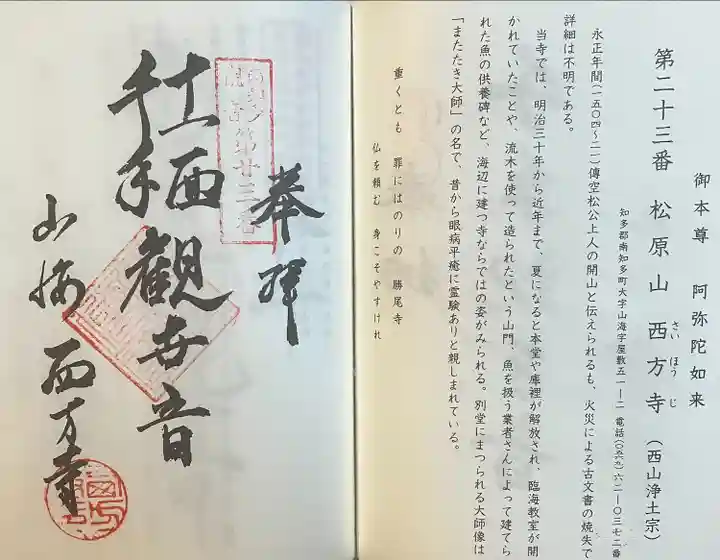 御本尊 阿弥陀如来
さい ほう じ
第二十三番 松原山 西方寺 (西山浄土宗)
知多郡南知多町大字山海字屋敷五一―二 電話(〇五六九)六二―〇三七二番
永正年間(一五〇四~二一)傳空松公上人の開山と伝えられるも、火災による古文書の焼失で
詳細は不明である。
当寺では、明治三十年から近年まで、夏になると本堂や庫裡が解放され、臨海教室が開
かれていたことや、流木を使って造られたという山門、魚を扱う業者さんによって建てら
れた魚の供養碑など、海辺に建つ寺ならではの姿がみられる。別堂にまつられる大師像は
「またたき大師」の名で、昔から眼病平癒に霊験ありと親しまれている。
重くとも 罪にはのりの 勝尾寺
仏を頼む 身こそやすけれ
奉拝
第廿三番
十一面
千手
観世音
山海 西方寺